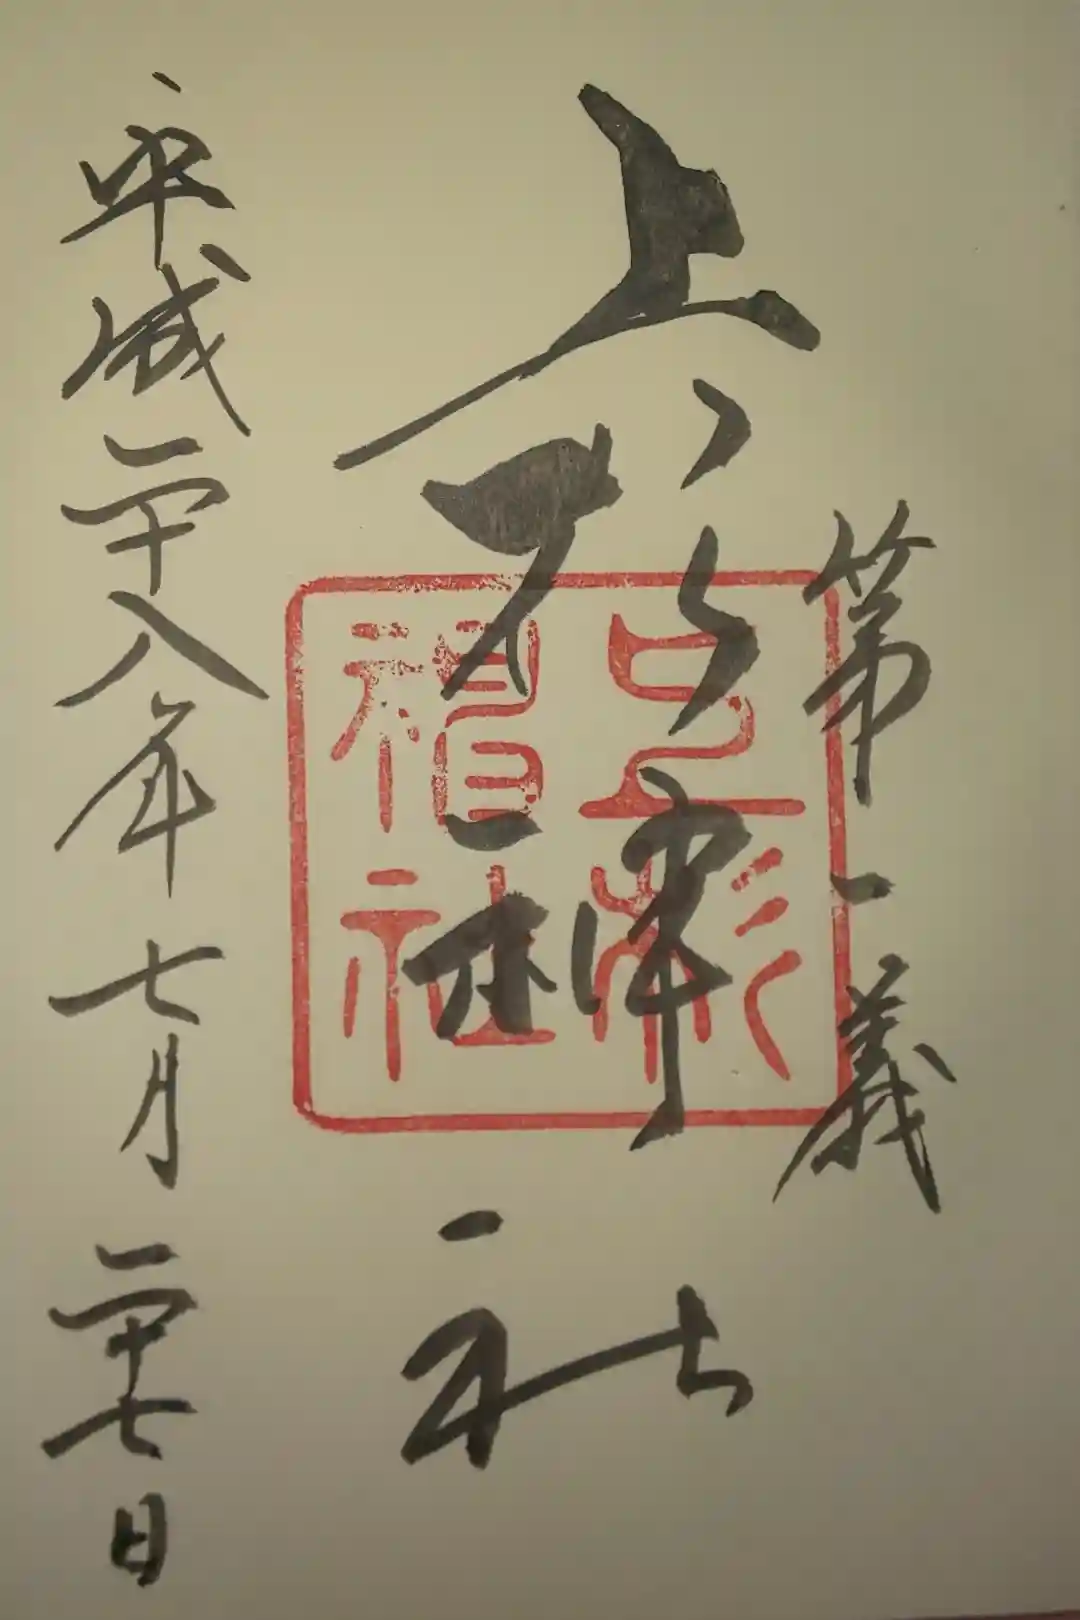 第一義
上杉神社
上杉
神社
平成二十八年七月二十七日